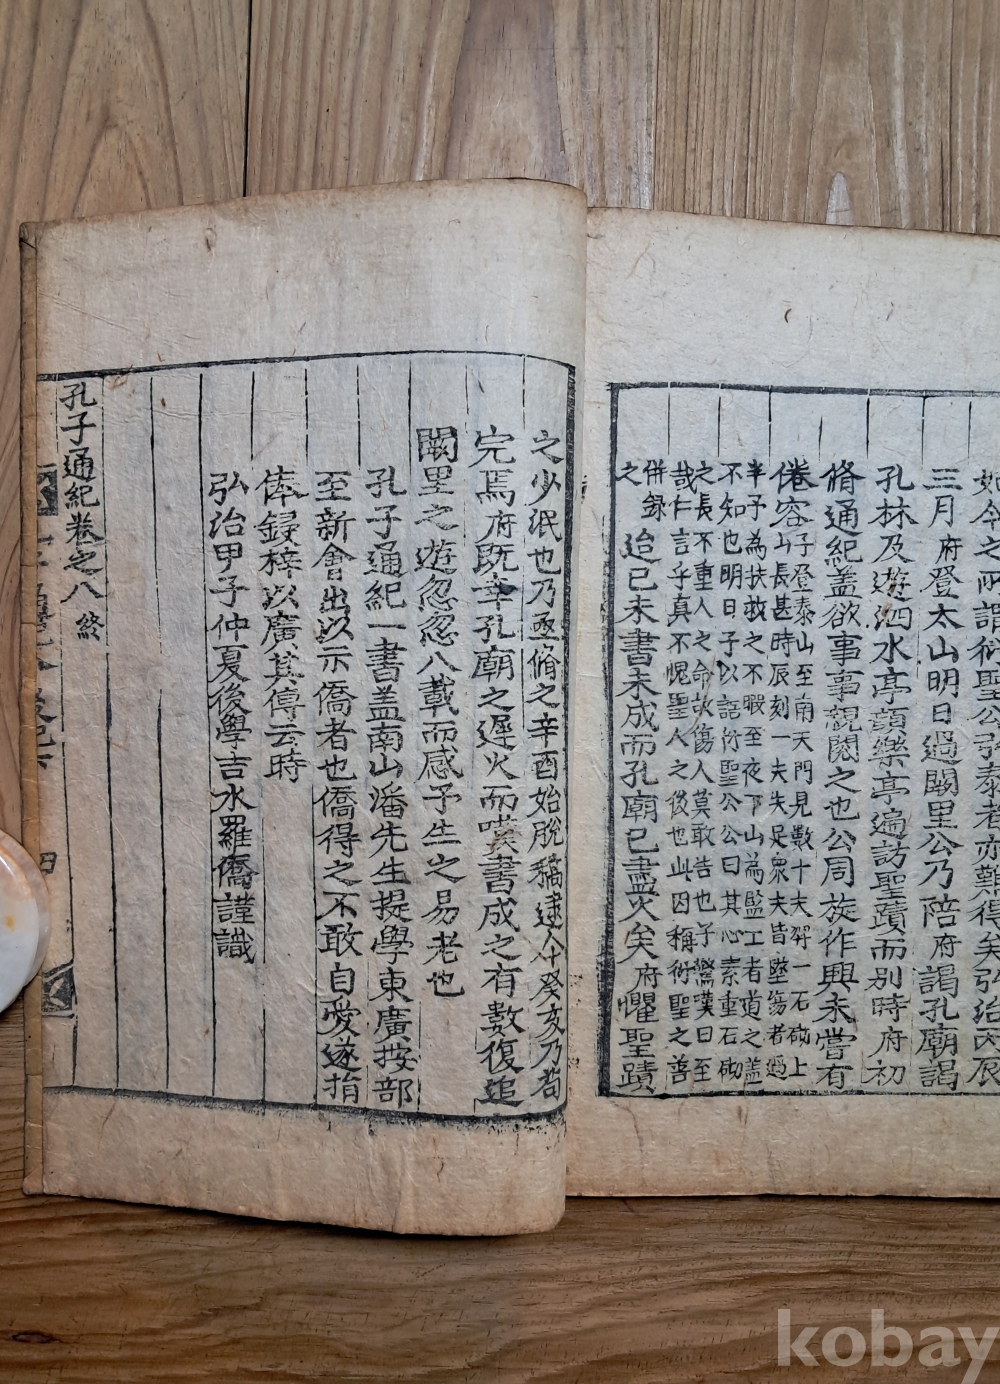 如今之所謂衍聖公弘泰者亦難得矣弘治丙辰
三月府登太山明日過闕里公乃陪府謁孔廟謁
孔林及遊泗水亭顔樂亭遍訪聖蹟而别時府初
脩通紀盖欲事事親閱之也公周旋作興未嘗有
倦容子登泰山至南天門見數十夫舁一石砌上
山長甚時辰刻一夫失足衆夫皆墜傷者過
半予為扶救之不暇至夜下山為監工者道之盖
不知也明日予以語衍聖公公曰其心素重石砌
之長不重人之命故傷人莫敢告也予驚嘆曰至
哉仁言乎真不愧聖人之後也此因稱衍聖之善
併録之
迨己未書未成而孔廟已盡火矣府懼聖蹟
之少泯也乃亟脩之辛酉始脱稿逮今癸亥乃畧
完焉府既幸孔廟之遲火而嘆書成之有數復追
闕里之遊忽忽八載而感予生之易老也
孔子通紀一書盖南山潘先生提學東廣按部
至新會出以示僑者也僑得之不敢自愛遂指
俸鋟梓以廣其傳云時
弘治甲子仲夏後學吉水羅僑謹識
孔子通紀卷之八 終
四
kobay